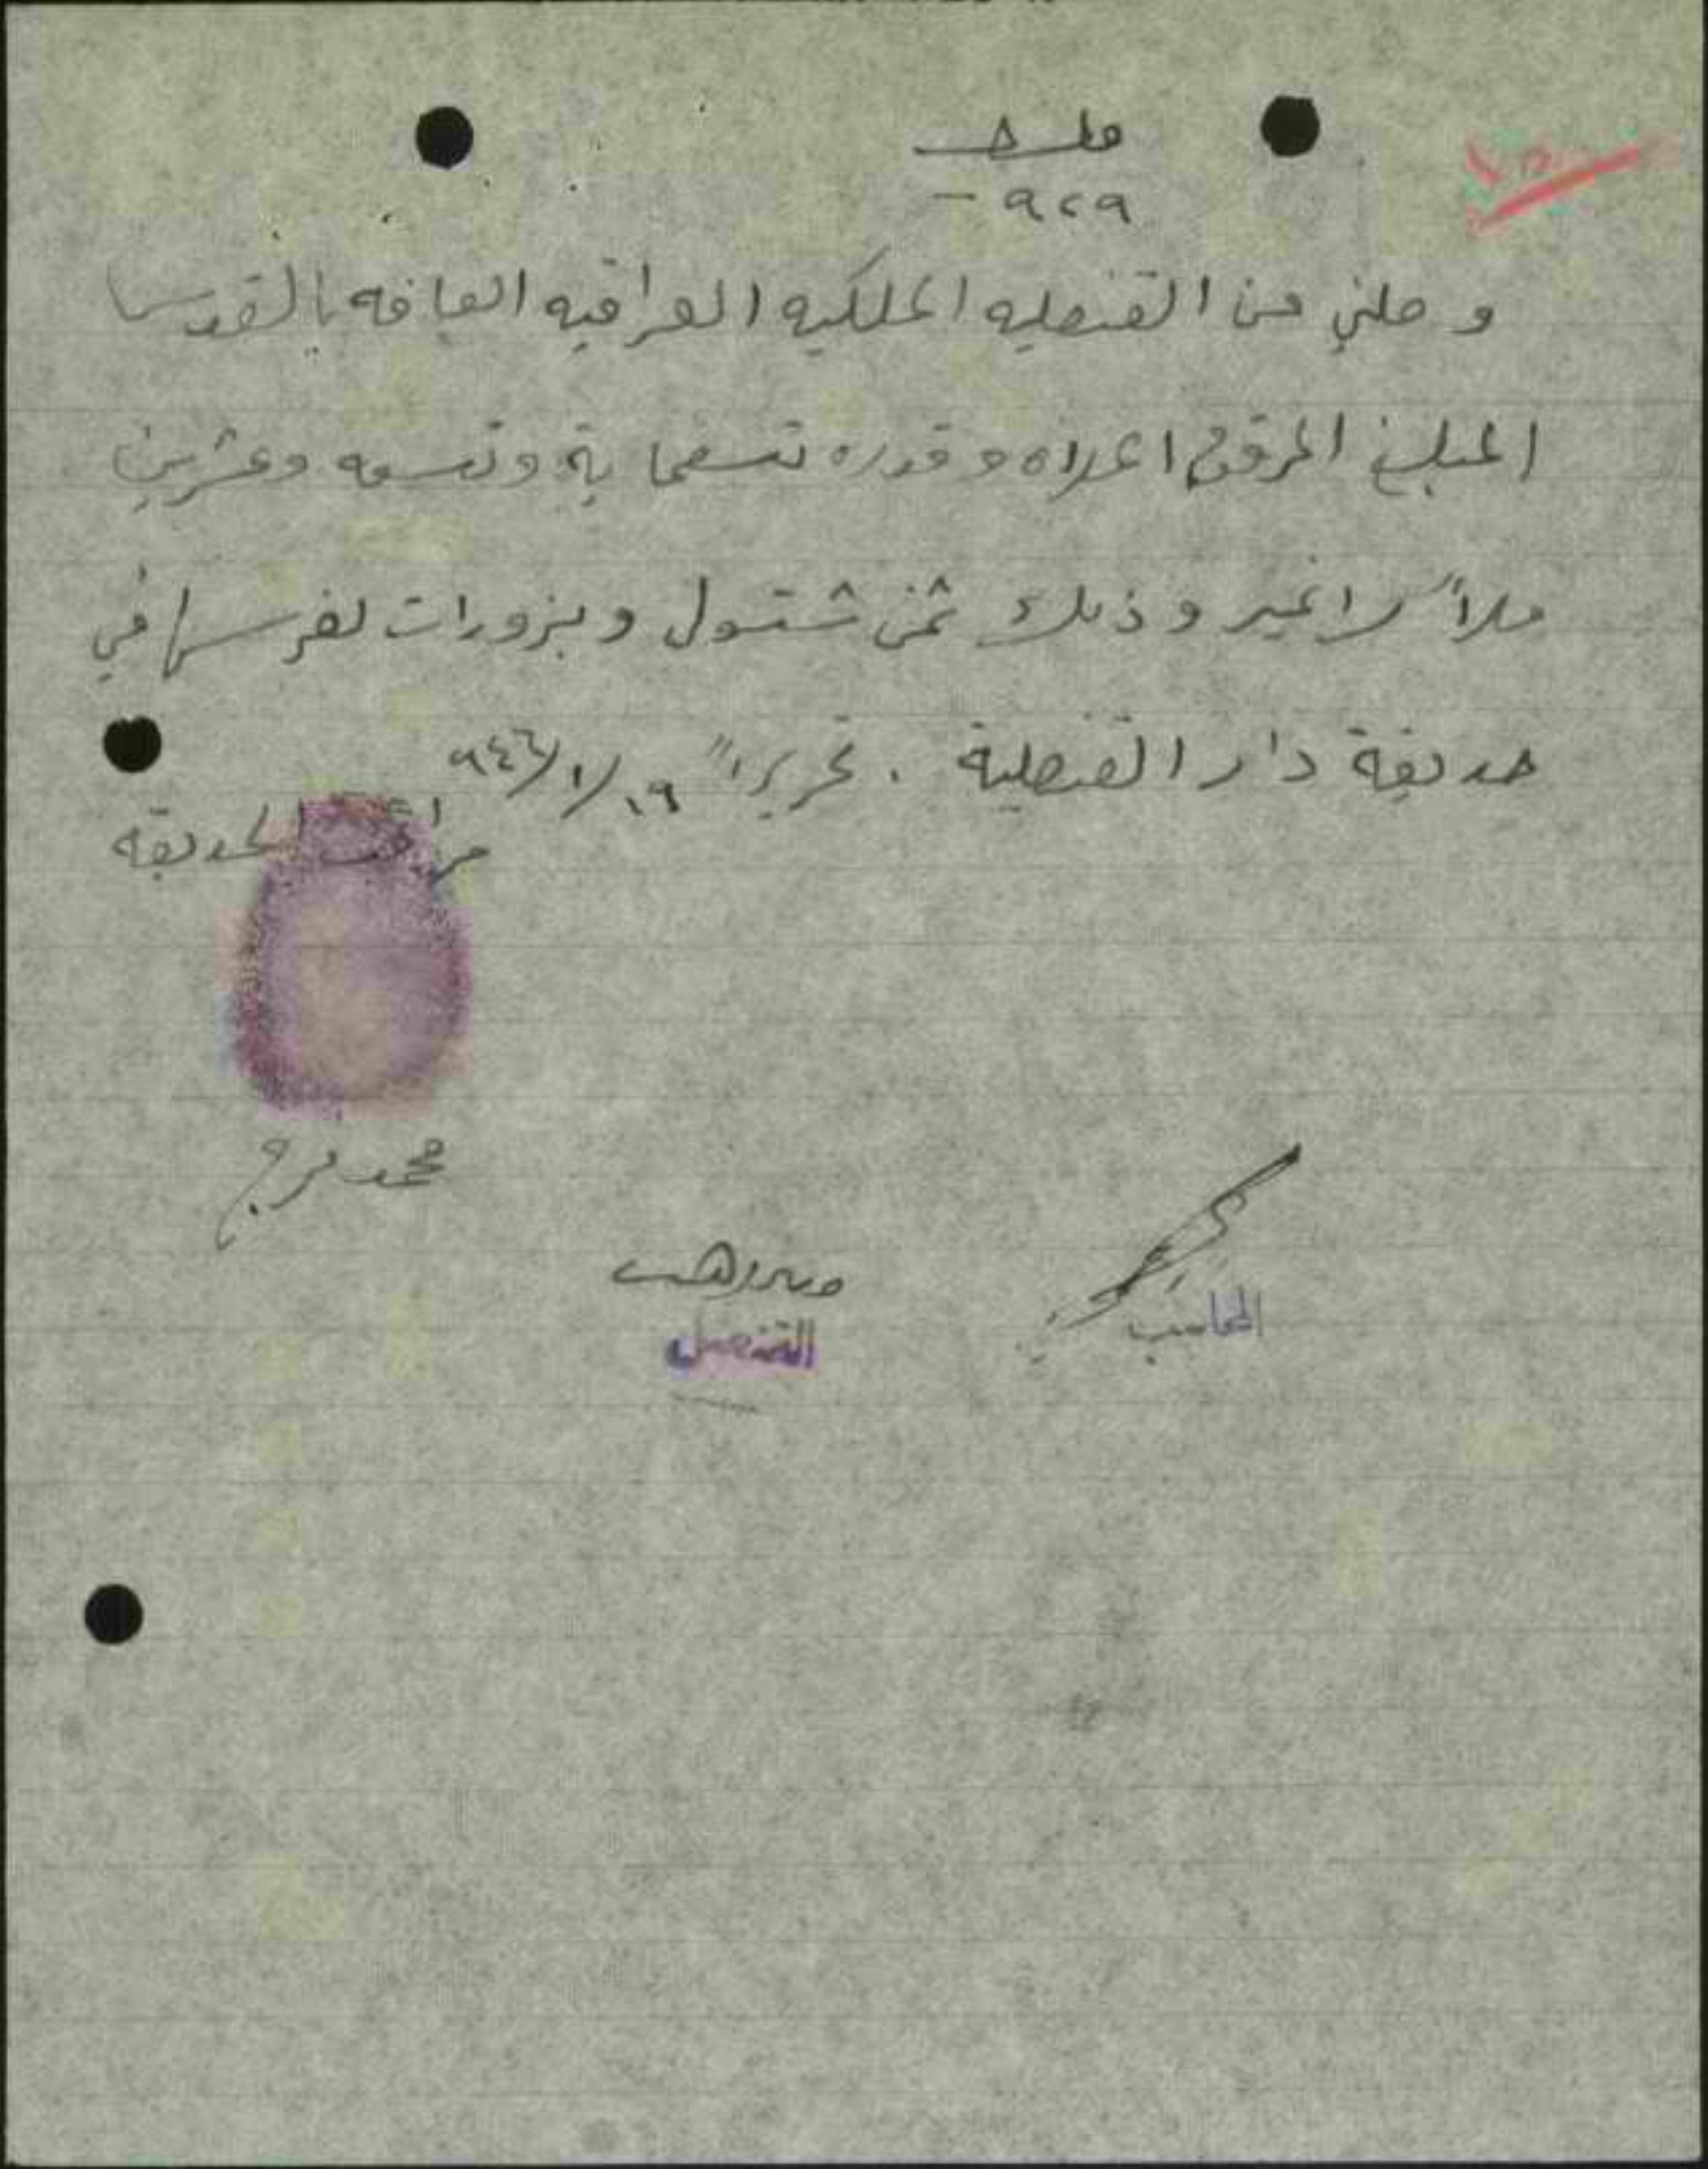 ملس
٩٢٩ -
وصلني من القنصليه الملكيه العراقيه العامه بالقدس
المبلغ المرقوم اعلاه وقدره تسعماية وتسعه وعشرين
ملاً لا غير وذلك ثمن شتول وبزورات لغرسها في
حديقة دار القنصلية . تحريراً ١٩/١/٩٤٦
الحديقه
محمد فرج
المحاسب
القنصل